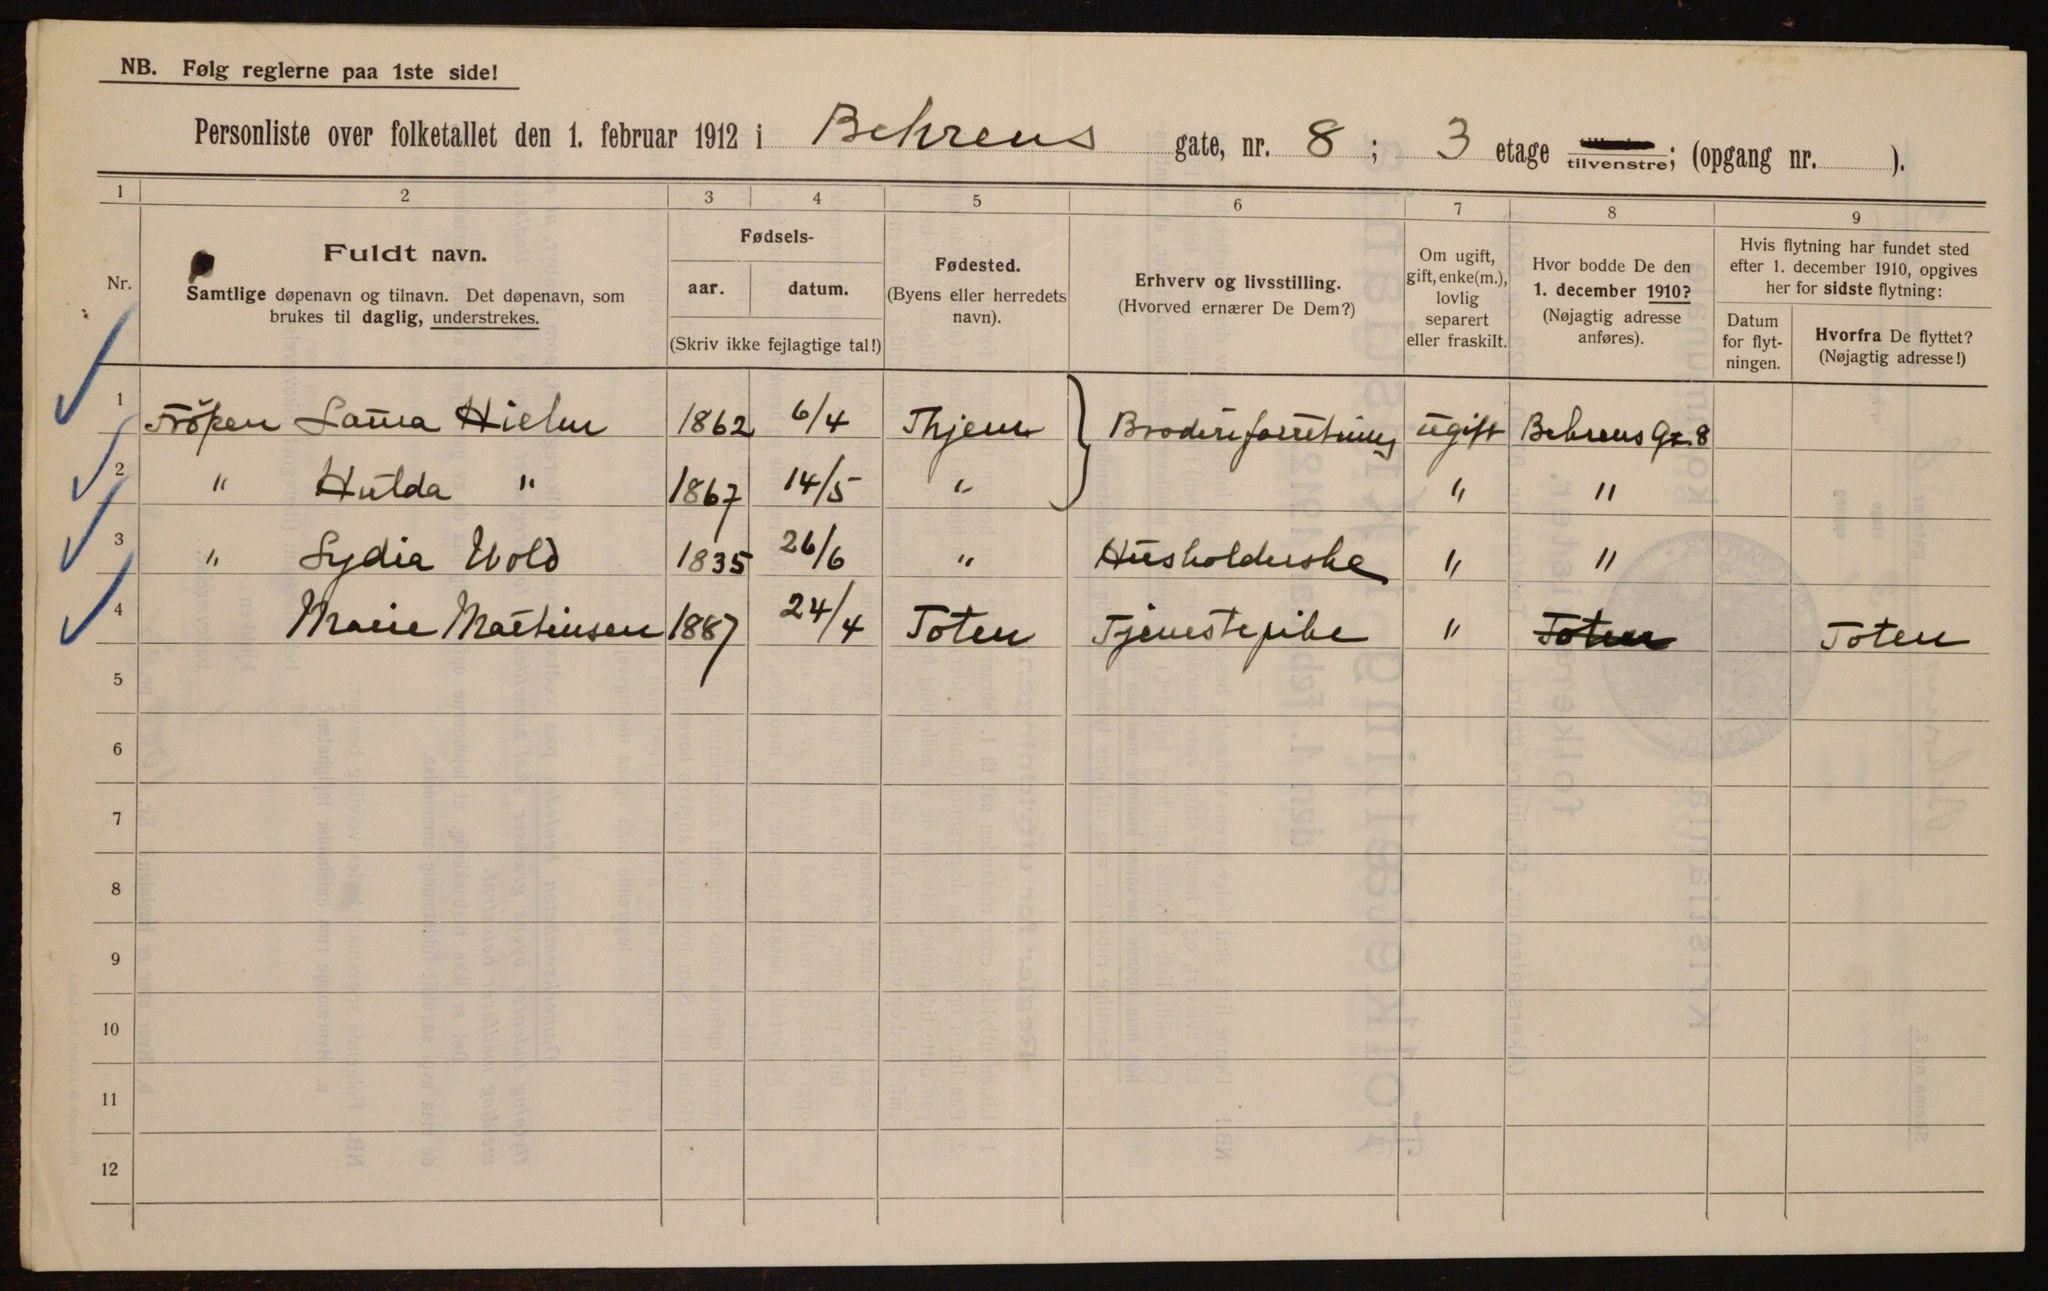 NB. Følg reglerne paa 1ste side!
Personliste over folketallet den 1. februar 1912 i Behrens gate, nr. 8 ; 3 etage tilvenstre; (opgang nr. ).
1 2 3 4 5 6 7 8 9
Nr.
Fuldt navn.
Samtlige døpenavn og tilnavn. Det døpenavn, som
brukes til daglig, understrekes.
Fødsels-
aar. datum.
(Skriv ikke fejlagtige tal!)
Fødested.
(Byens eller herredets
navn).
Erhverv og livsstilling.
(Hvorved ernærer De Dem?)
Om ugift,
gift, enke(m.),
lovlig
separert
eller fraskilt.
Hvor bodde De den
1. december 1910?
(Nøjagtig adresse
anføres).
Hvis flytning har fundet sted
efter 1. december 1910, opgives
her for sidste flytning:
Datum
for flyt-
ningen.
Hvorfra De flyttet?
(Nøjagtig adresse!)
1 Fröken Laura Hielm 1862 6/4 Broderiforretning ugift Behrens Gt. 8
2 " Hulda " 1867 14/5 " " "
3 " Lydia Wold 1835 26/6 " Husholderske " "
4 Marie Martinsen 1887 24/4 Toten Tjenestepike " Toten Toten
5
6
7
8
9
10
11
12